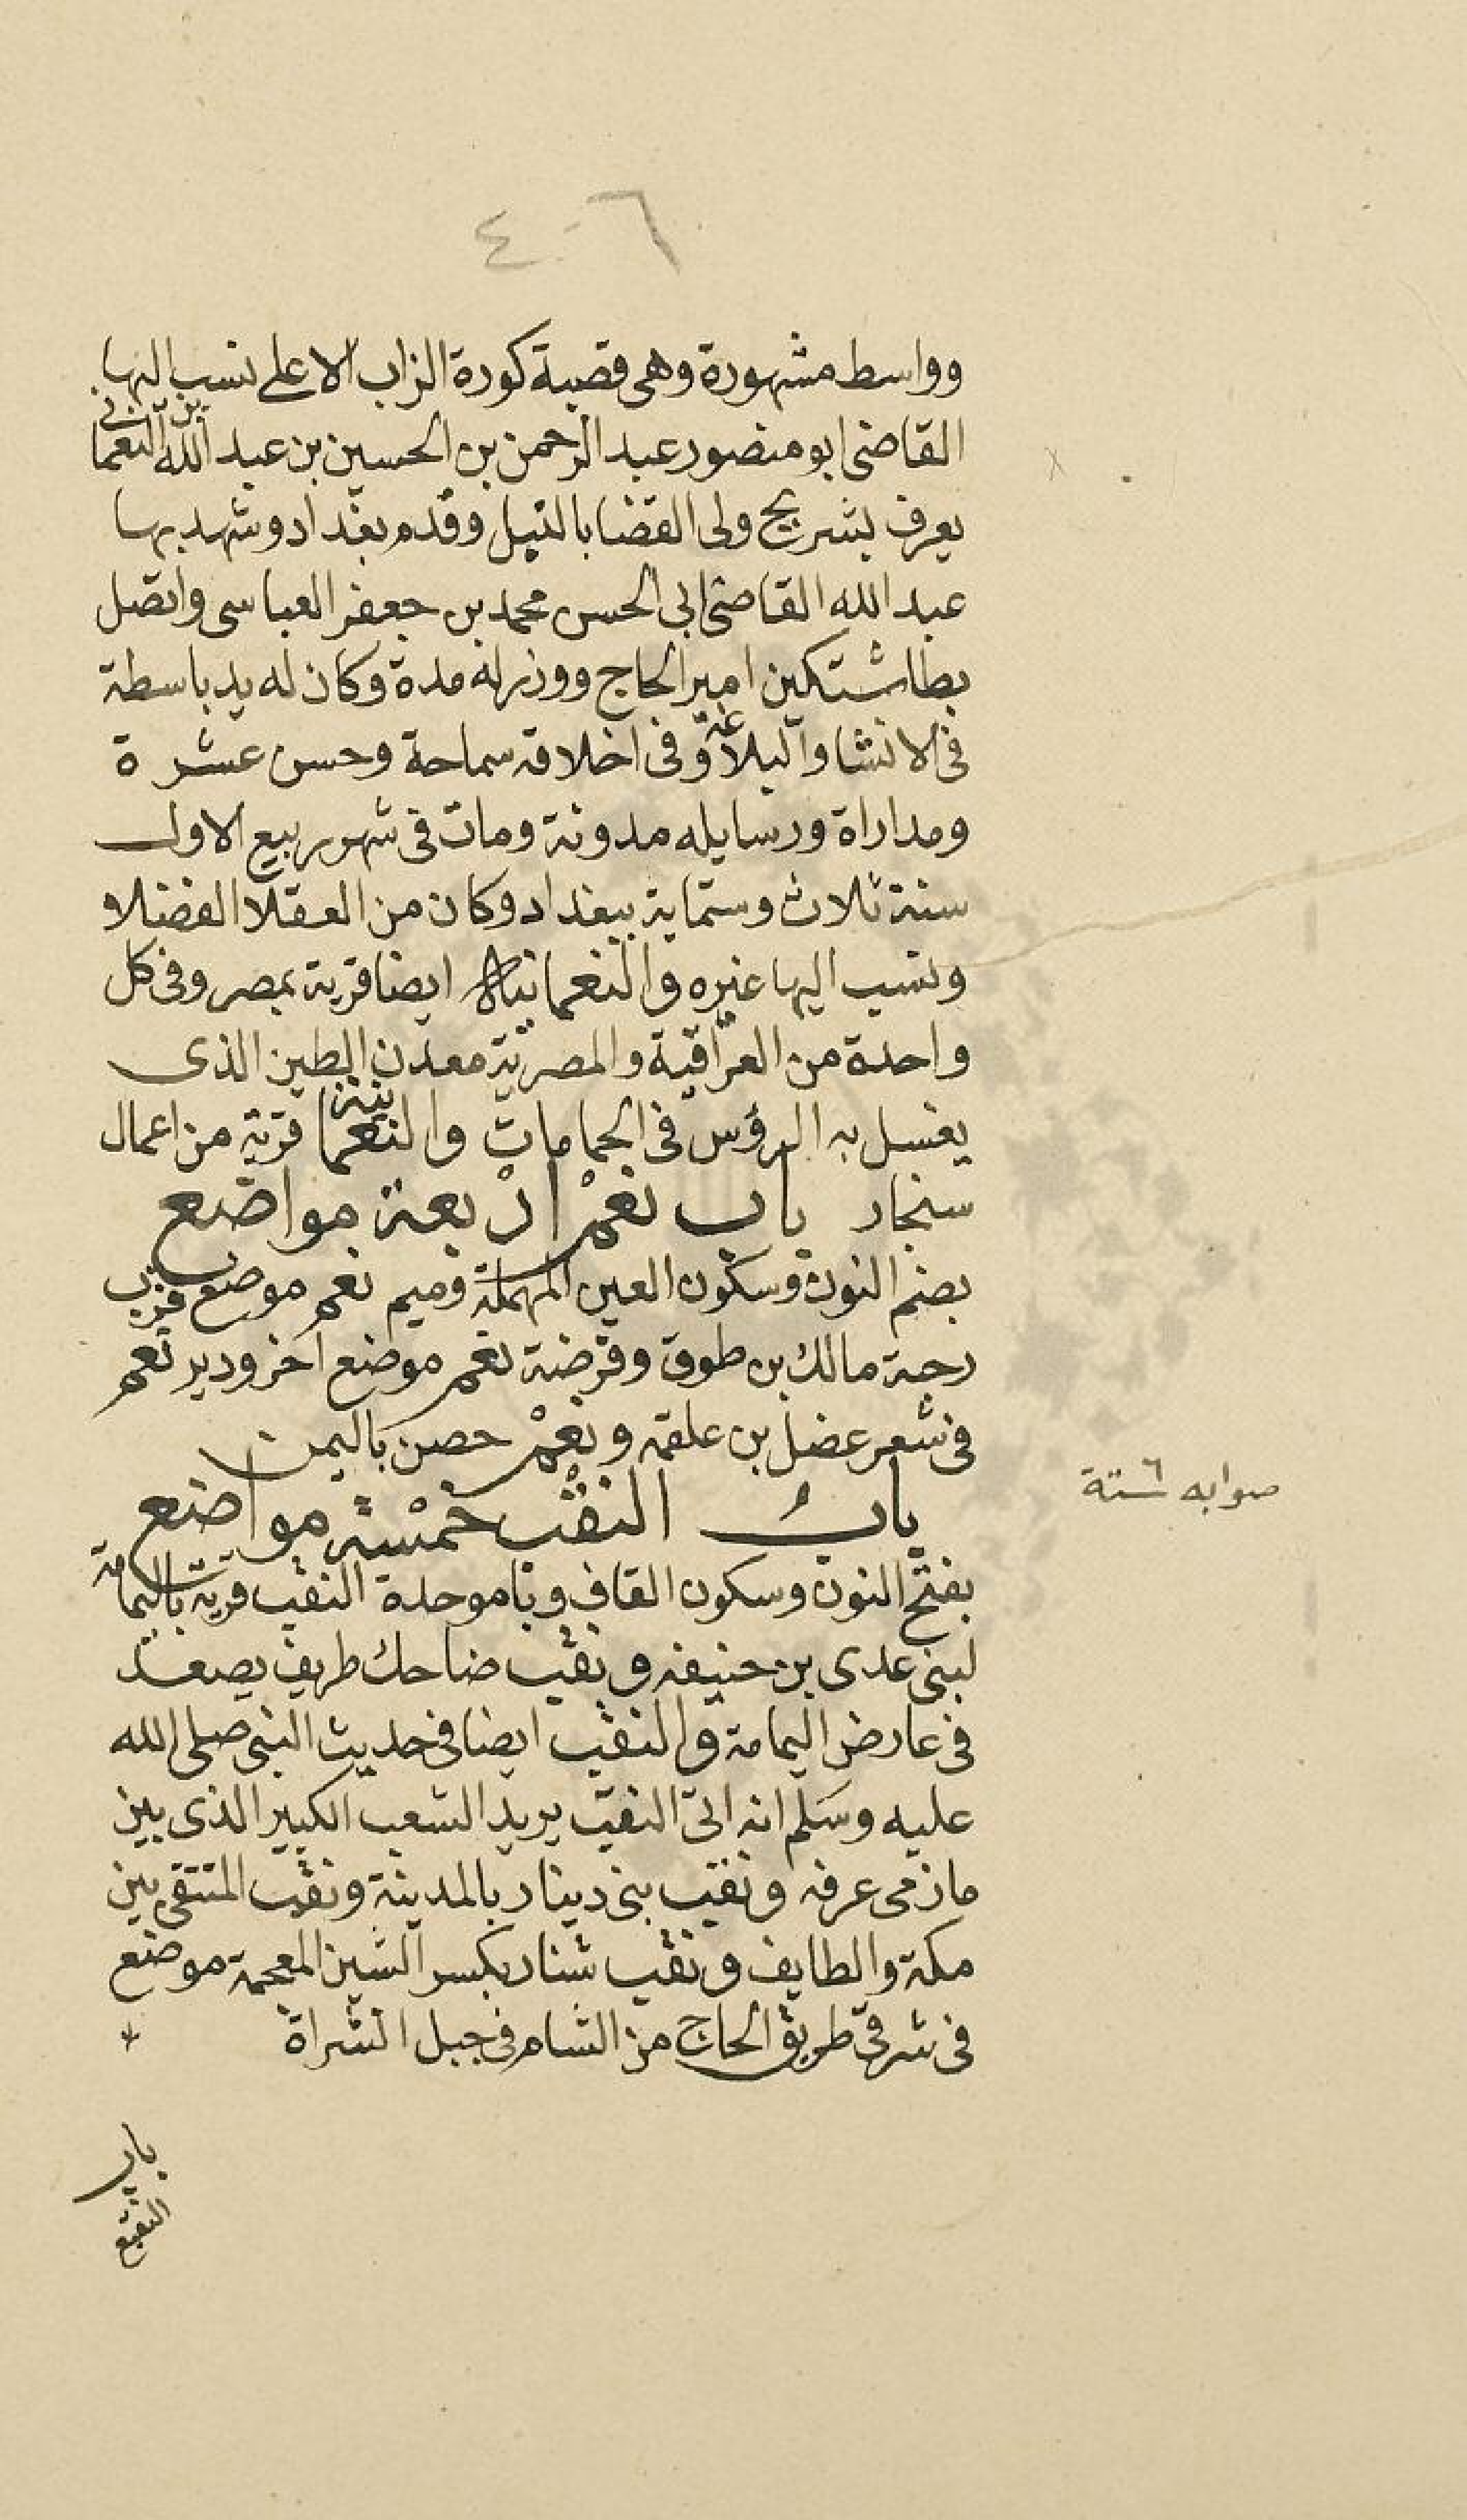 ٤٠٦
وواسط مشهورة وهى قصبة كورة الزاب الاعلى نسب اليها
القاضى ابو منصور عبد الرحمن بن الحسين بن عبد الله النعمانى
يعرف بشريح ولى القضا بالنيل وقدم بغداد وشهد بها
عبد الله القاضى ابى الحسن محمد بن جعفر العباسى واتصل
بطاشتكين امير الحاج ووزر له مدة وكان له يد باسطة
فى الانشا والبلاغة وفى اخلاقه سماحة وحسن عشرة
ومداراة ورسايله مدونة ومات فى شهر ربيع الاول
سنة ثلاث وستماية ببغداد وكان من العقلا الفضلا و
ونسب اليها غيره والنعمانية ايضا قرية بمصر وفى كل
واحدة من العراقية والمصرية معدن الطين الذى
يغسل به الرؤس فى الحمامات والنعمانية قرية من اعمال
سنجار باب نعْم اربعة مواضع
بضم النون وسكون العين المهملة وميم نعم موضع قرب
رحبة مالك بن طوق وفرضة نعم موضع اخر ودير نعم
فى شعر عضل بن علقمه ونعْم حصن باليمن
باب النقْب خمْسة مواضع
صوابه ستة ٦
بفتح النون وسكون القاف وبا موحدة النقب قرية باليمامة
لبنى عدى بن حنيفه ونقب ضاحك طريف يصعد
فى عارض اليمامة والنقب ايضا فى حديث النبى صلى الله
عليه وسلم انه اتى النقب يريد الشعب الكبير الذى بين
مازمى عرفه ونقب بنى دينار بالمدينة ونقب المنتقى بين
مكة والطايف ونقب شنار بكسر الشين المعجمة موضع
فى شرقى طريق الحاج من الشام فى جبل الشراة
باب
النقيع